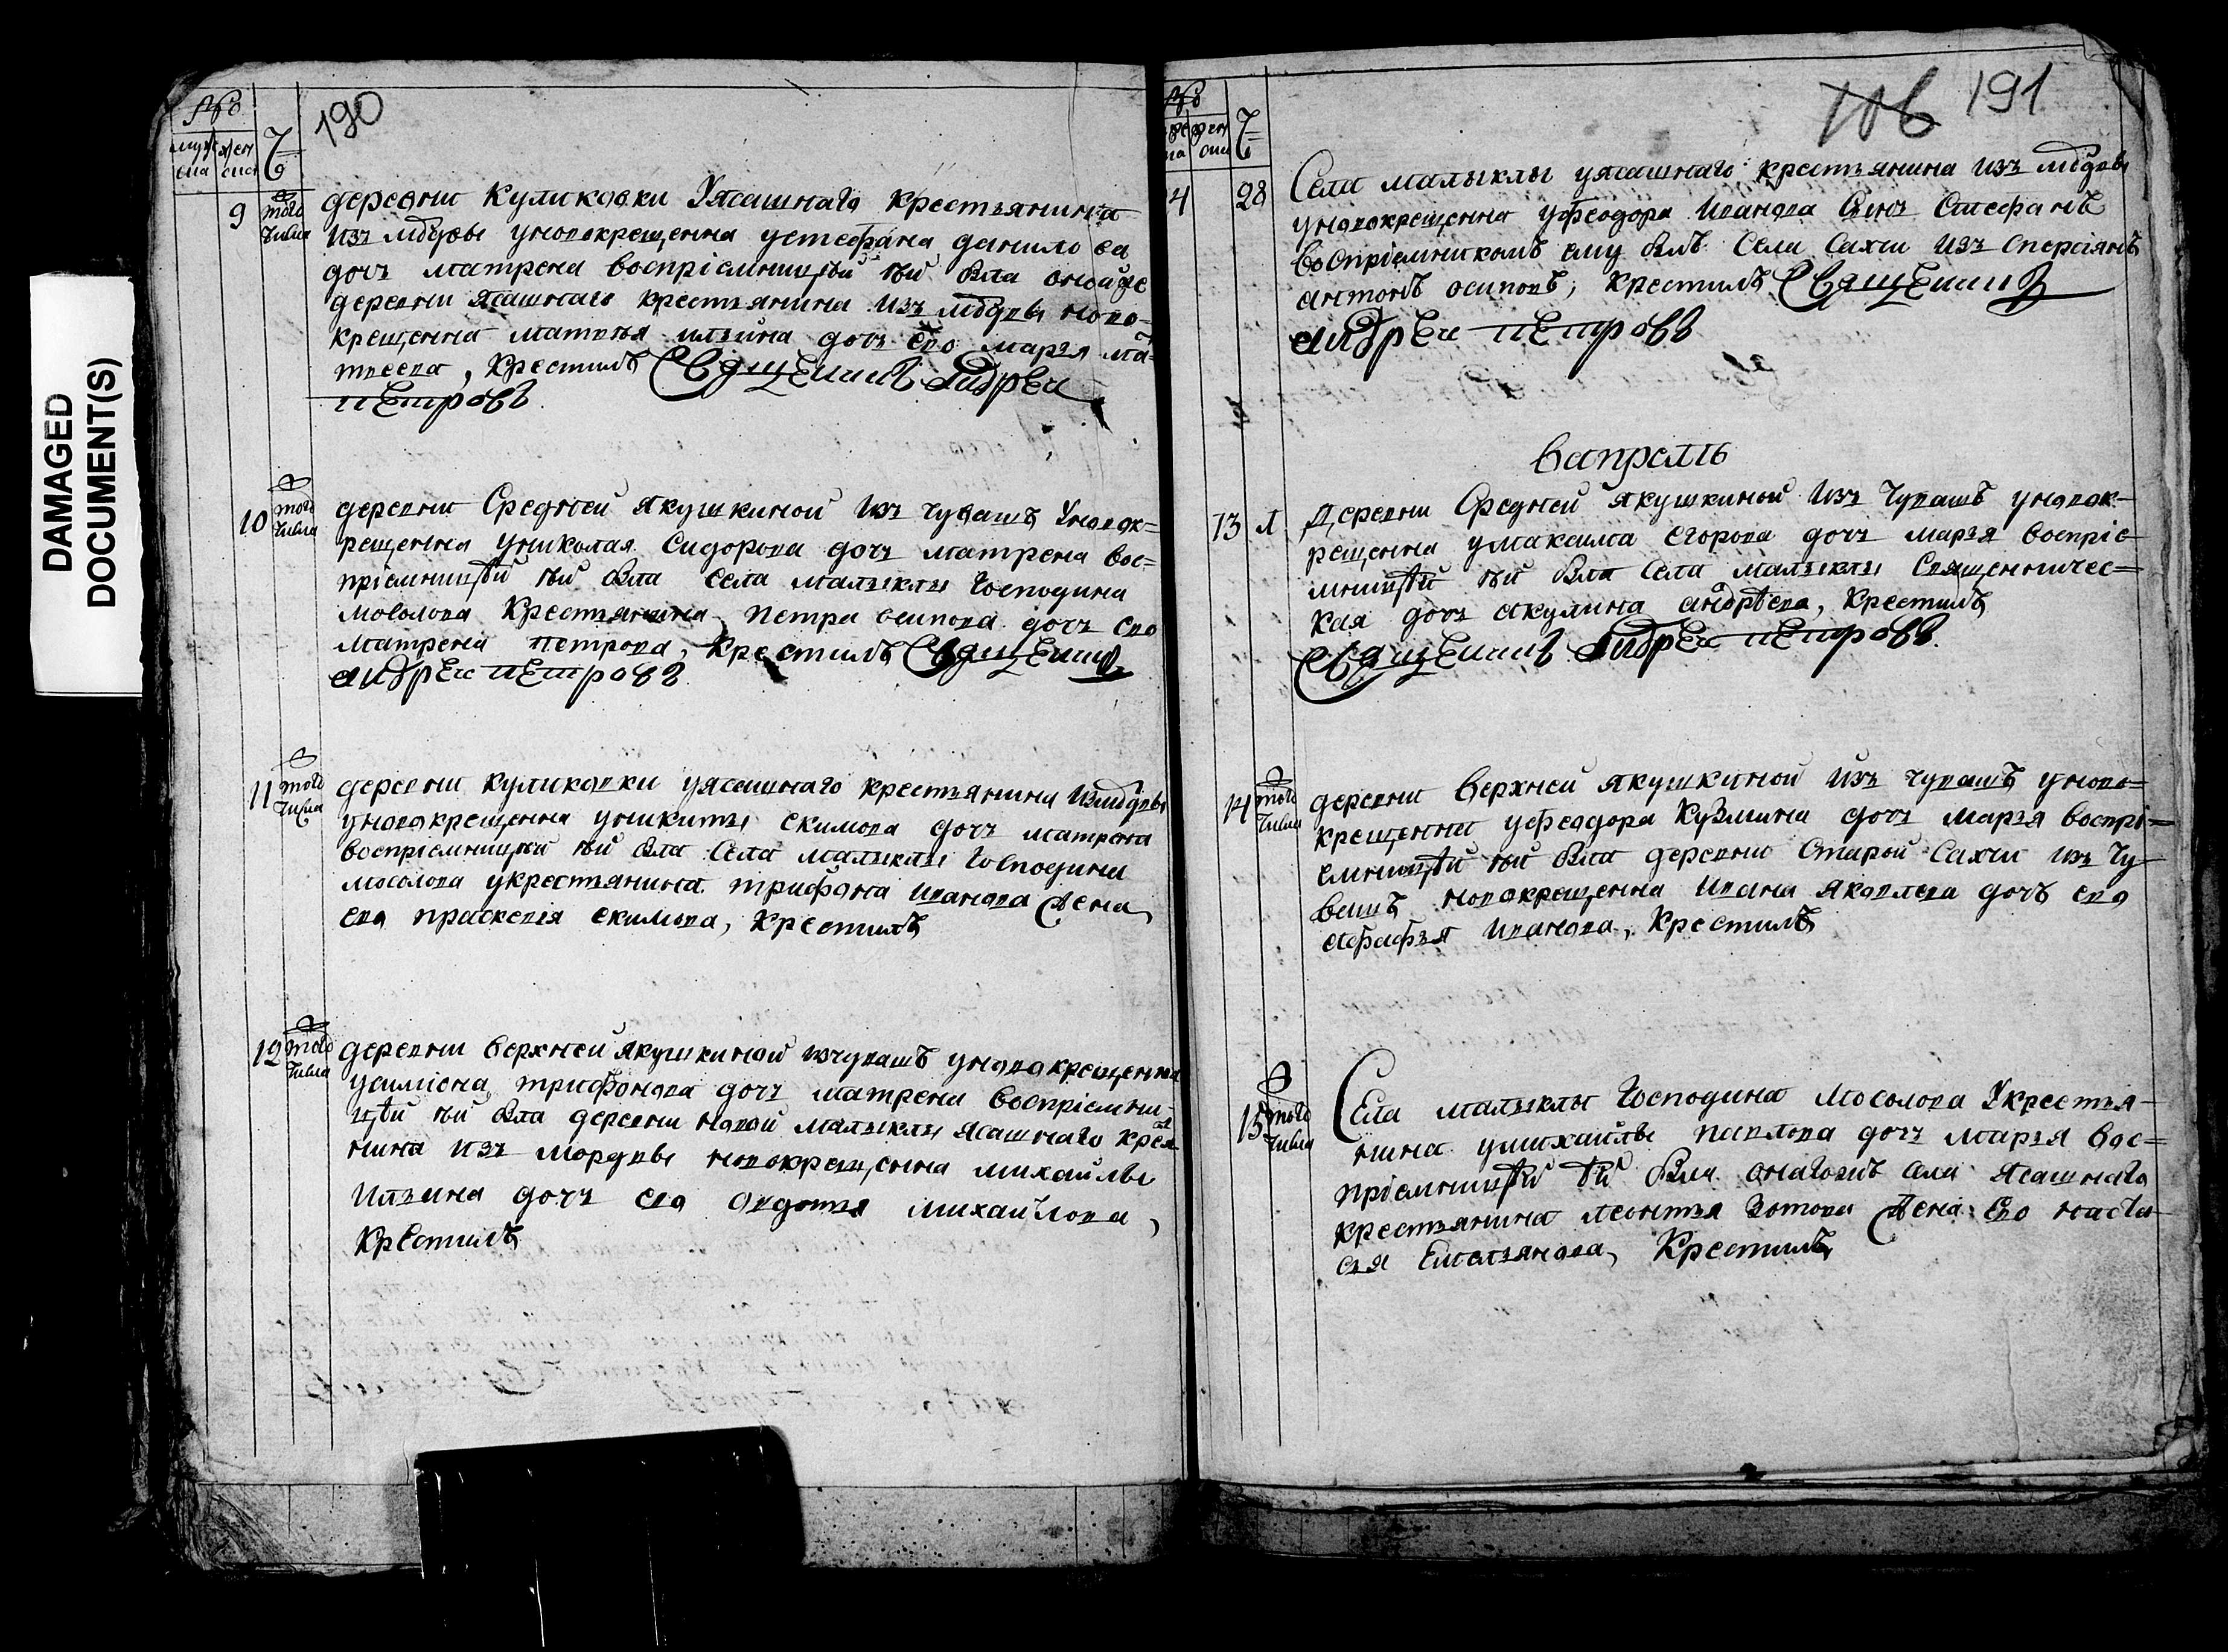 DAMAGED
DOCUMENT(S)
190
муже
ска
жен
ска
9
того
числа
деревни Куликовки Уясашнаго крестьянина
изъ мордвы уновокрещенна устефана данилова
дочь матрена восприемницѣй ѣй была оной же
деревни ясашнаго крестьянина изъ мордвы ново-
крещенна матвѣя ильина дочь ево марья ма-
твеева, крестилъ Священникъ Андрей
петровъ
10
того
числа
деревни Средней якушкиной изъ чувашъ Уновок-
рещенна униколая Сидорова дочь матрена вос-
приемницѣй ѣй была села малыклы господина
мосолова крестьянина петра осипова дочь ево
матрена петрова, крестилъ Священникъ
андрей петровъ
11
того
числа
деревни куликовки уясашнаго крестьянина измордвы
уновокрещенна уникиты екимова дочь матрена
восприемницѣй ѣй была села малыклы господина
мосолова укрестьянина трифона иванова жена
ево праскевья екимова, крестилъ
12
того
числа
деревни верхней якушкиной ичувашъ уновокрещенна
усимиона трифонова дочь матрена восприемни-
цѣй ѣй была деревни новой малыклы ясашнаго крестья
нина изъ мордвы новокрещенна михайлы
ильина дочь ево овдотья михайлова,
крестилъ
191
4
28
Села малыклы уясашнаго крестьянина изъ мордвы
уновокрещенна уфеодора иванова сынъ Стефанъ
восприемникомъ ему былъ села сахчи изъ сперсиянъ
антонъ осиповъ, крестилъ Священникъ
андрей петровъ
вапрель
13
л
деревни Средней якушкиной изъ чувашъ уновок-
рещенна умаксима егорова дочь марья восприе-
мницѣй ѣй была села малыклы священничес-
кая дочь акулина андрѣева, крестилъ
Священникъ Андрей петровъ
14
того
числа
деревни верхней якушкиной изъ чувашъ уново-
крещенна уфеодора кузмина дочь марья воспрі-
емницѣй ѣй была деревни старой сахчи изъ чу-
вашъ новокрещенна ивана яковлева дочь ево
агафья иванова, крестилъ
15
того
числа
Села малыклы господина мосолова укрестья-
нина умихайлы павлова дочь марья вос-
приемницѣй ѣй была онагожъ села ясашнаго
крестьянина леонтья зотова жена ево наста-
сья Емельянова, крестилъ